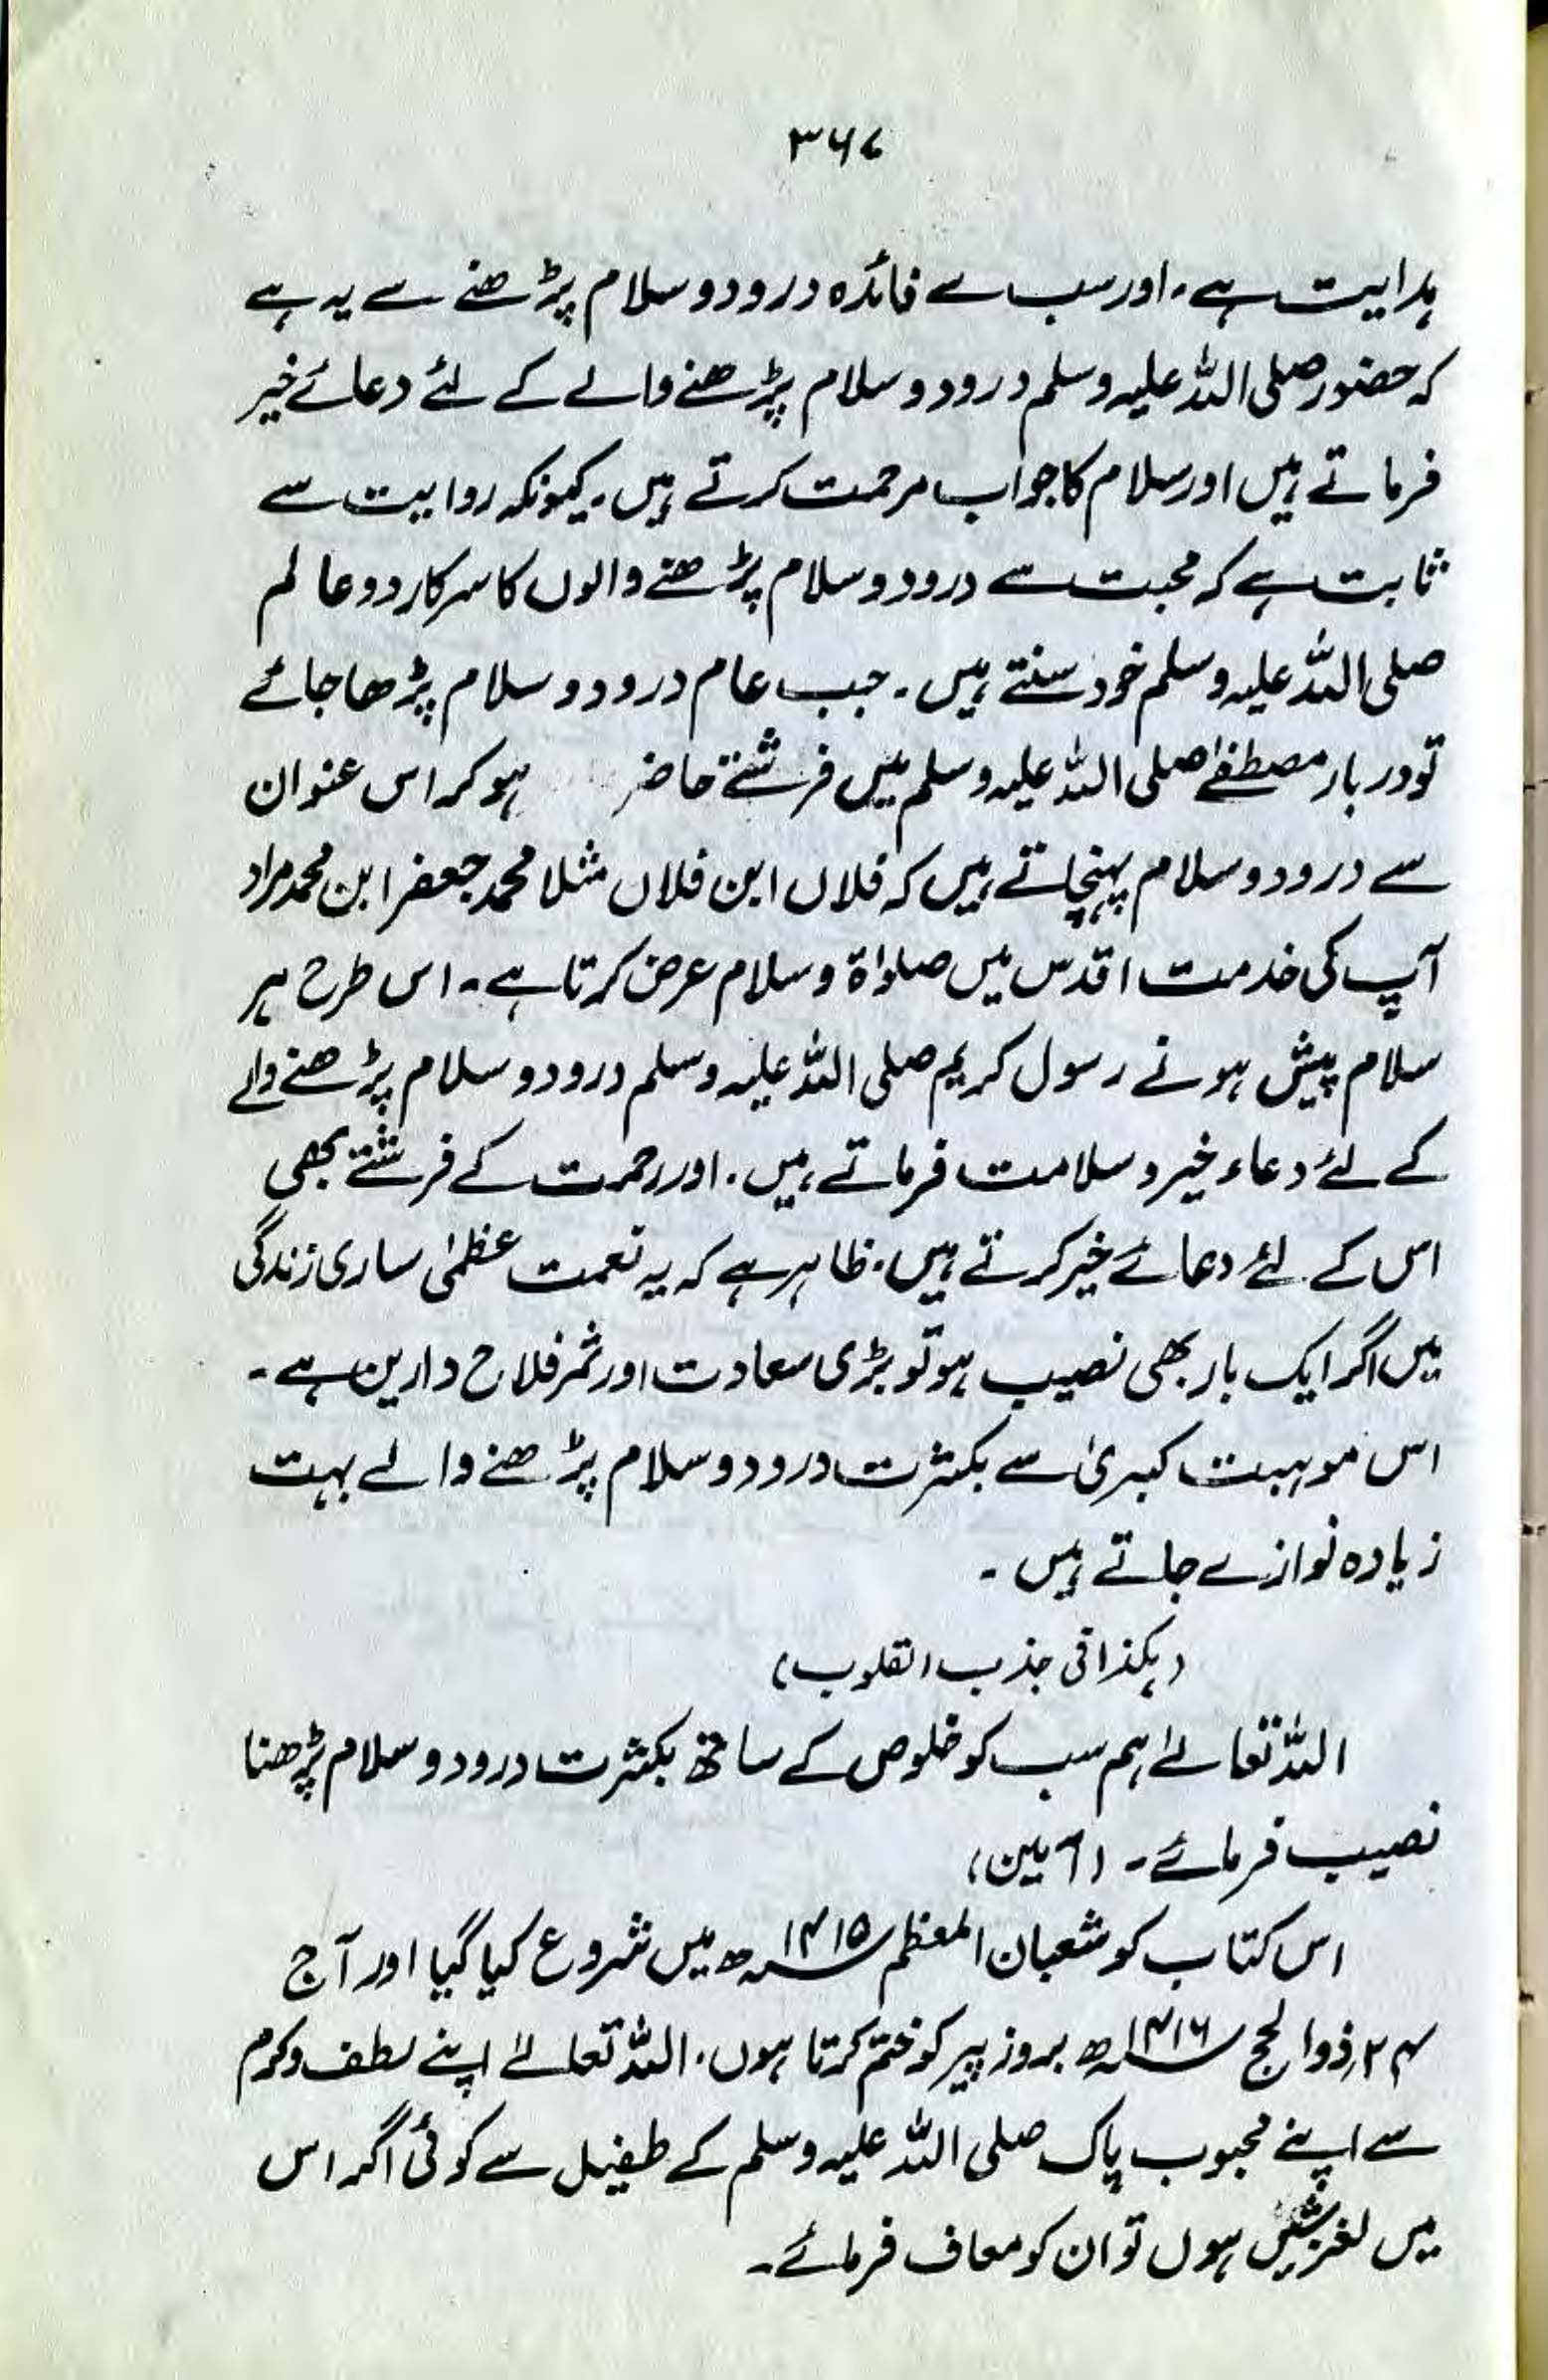 ۳۶۷
ہدایت ہے۔ اور سب سے فائدہ درود و سلام پڑھنے سے یہ ہے
کہ حضور صلی اللہ علیہ وسلم درود و سلام پڑھنے والے کے لئے دعائے خیر
فرماتے ہیں اور سلام کا جواب مرحمت کرتے ہیں۔ کیونکہ روایت سے
ثابت ہے کہ محبت سے درود و سلام پڑھنے والوں کا سرکار دو عالم
صلی اللہ علیہ وسلم خود سنتے ہیں۔ جب عام درود و سلام پڑھا جائے
تو دربار مصطفےٰ صلی اللہ علیہ وسلم میں فرشتے حاضر ہو کر اس عنوان
سے درود و سلام پہنچاتے ہیں کہ فلاں ابن فلاں مثلا محمد جعفر ابن محمد مراد
آپ کی خدمت اقدس میں صلواۃ و سلام عرض کرتا ہے۔ اس طرح ہر
سلام پیش ہونے رسول کریم صلی اللہ علیہ وسلم درود و سلام پڑھنے والے
کے لئے دعاء خیر و سلامت فرماتے ہیں۔ اور رحمت کے فرشتے بھی
اس کے لئے دعائے خیر کرتے ہیں۔ ظاہر ہے کہ یہ نعمت عظمٰی ساری زندگی
میں اگر ایک بار بھی نصیب ہو تو بڑی سعادت اور ثمر فلاح دارین ہے۔
اس موہبت کبریٰ سے بکثرت درود و سلام پڑھنے والے بہت
زیادہ نوازے جاتے ہیں۔
(ہکذا فی جذب القلوب)
اللہ تعالےٰ ہم سب کو خلوص کے ساتھ بکثرت درود و سلام پڑھنا
نصیب فرمائے۔ (آمین)
اس کتاب کو شعبان المعظم ۱۴۱۵ھ میں شروع کیا گیا اور آج
۲۴؍ ذوالحج ۱۴۱۶ھ بروز پیر کو ختم کرتا ہوں۔ اللہ تعالےٰ اپنے لطف و کرم
سے اپنے محبوب پاک صلی اللہ علیہ وسلم کے طفیل سے کوئی اگر اس
میں لغزشیں ہوں تو ان کو معاف فرمائے۔